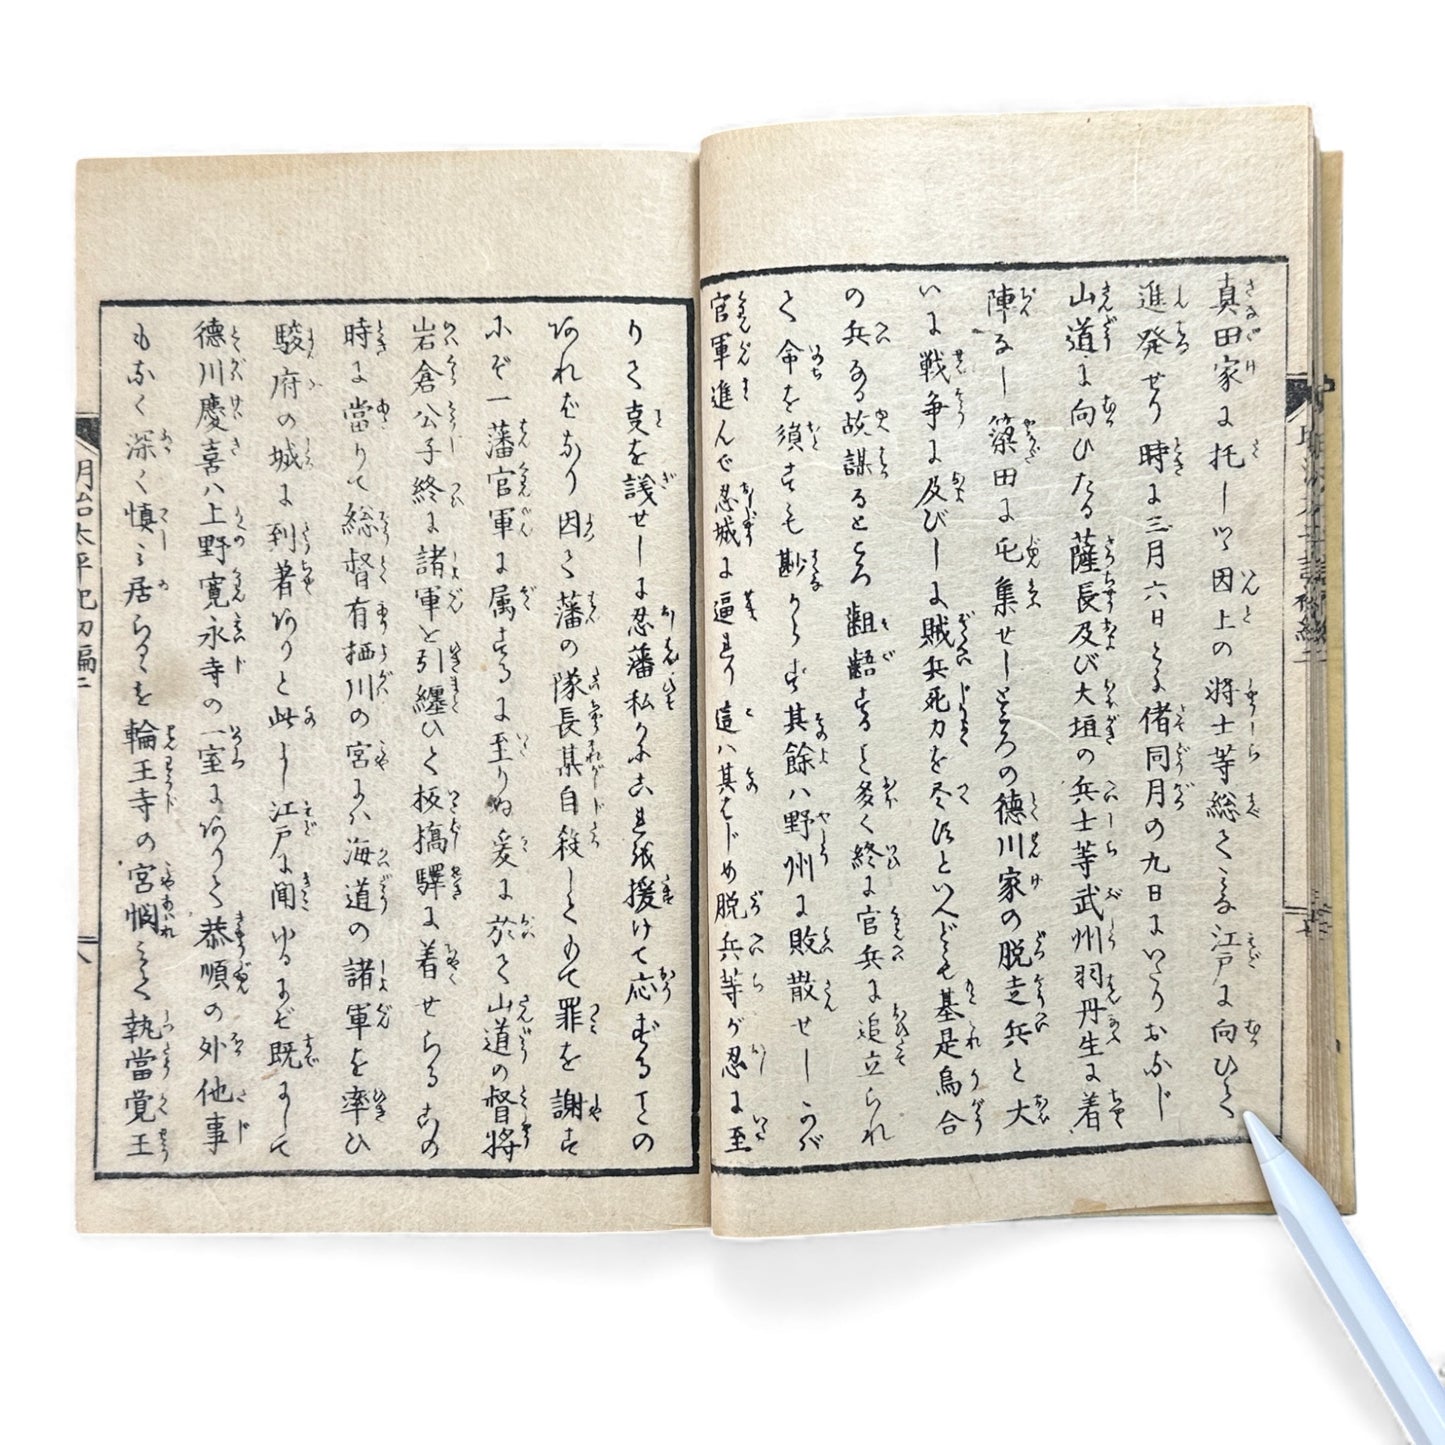 真田家に托しつゝ因上の将士等総てみな江戸に向ひて
進発せり時に三月六日となる偖同月の九日にいたりおなじ
山道に向ひたる薩長及び大垣の兵士等武州羽丹生に着
陣なし簗田に屯集せしところの徳川家の脱走兵と大
いに戦争に及びしに賊兵死力を尽すといへども基是烏合
の兵なる故謀るところ齟齬すると多く終に官兵に追立られ
て命を損すも尠からず其餘ハ野州に敗散せしかバ
官軍進んで忍城に逼れり這ハ其はじめ脱兵等が忍に至
りて走を議せしに忍藩私かにこれを援けて応ずるの
あればなり因て藩の隊長某自殺してもて罪を謝す
にぞ一藩官軍に属するに至りぬ爰に於て山道の督将
岩倉公子終に諸軍を引纏ひて板橋驛に着せらるこの
時に當りて総督有栖川の宮にハ海道の諸軍を率ひ
駿府の城に到着ありと此よし江戸に聞ゆるにぞ既にして
徳川慶喜ハ上野寛永寺の一室にありて恭順の外他事
もなく深く慎み居らるゝを輪王寺の宮憫みて執當覚王
明治太平記初編二
八